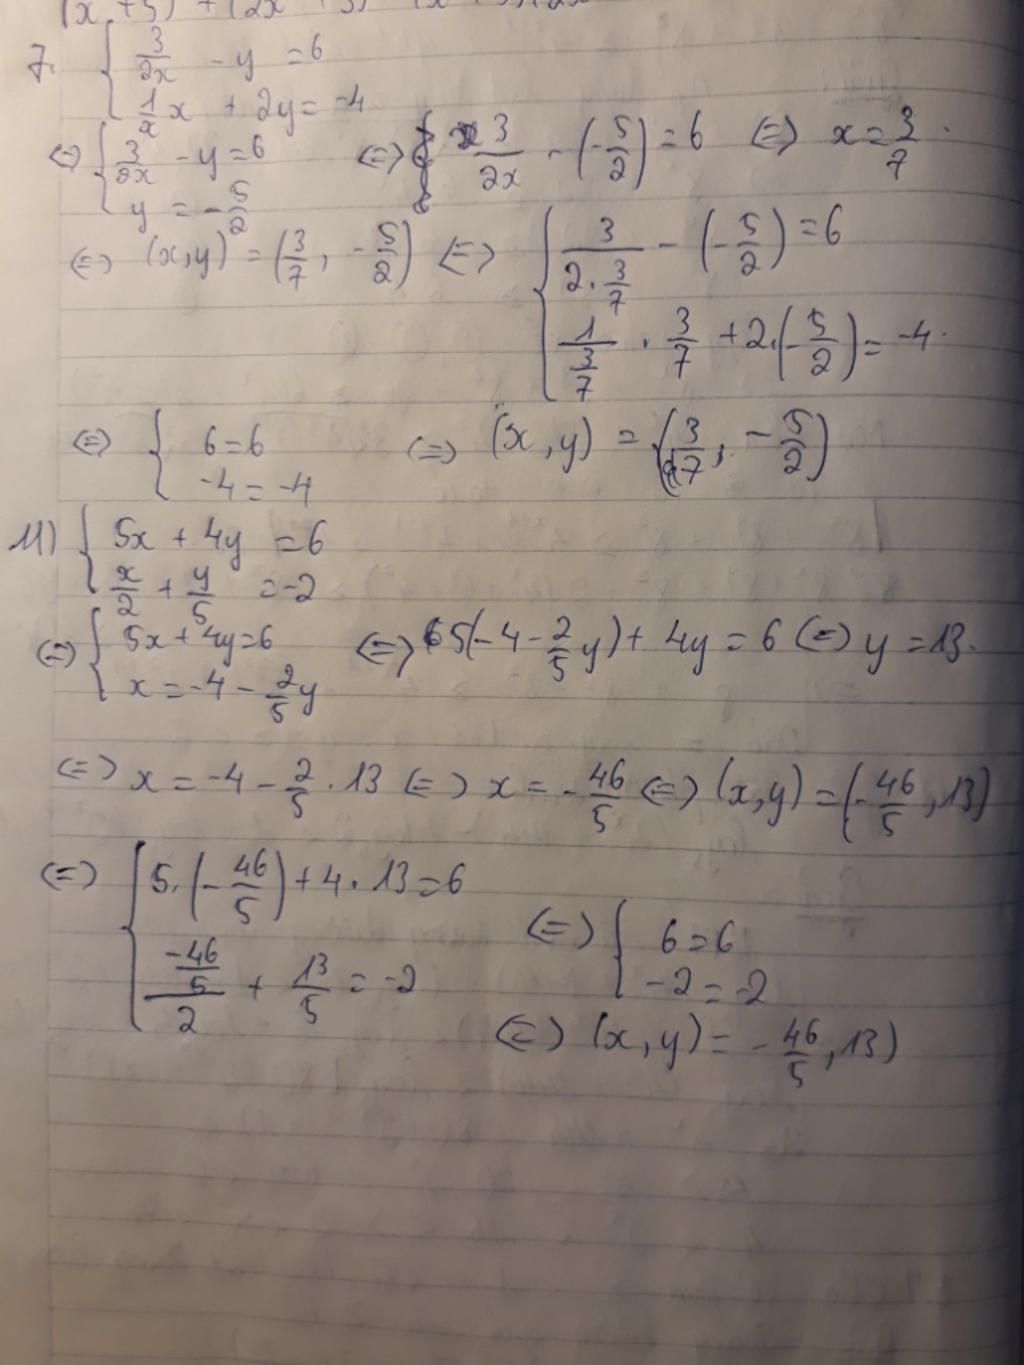 7. { 3/2x - y = 6
1/x x + 2y = -4
⇔ { 3/2x - y = 6 ⇔ 3/2x - (-5/2) = 6 ⇔ x = 3/7.
y = -5/2
⇔ (x,y) = (3/7, -5/2) ⇔ { 3/(2.3/7) - (-5/2) = 6
1/(3/7) . 3/7 + 2.(-5/2) = -4.
⇔ { 6 = 6 ⇔ (x,y) = (3/7, -5/2)
-4 = -4
11) { 5x + 4y = 6
x/2 + y/5 = -2
⇔ { 5x + 4y = 6 ⇔ 5(-4 - 2/5 y) + 4y = 6 ⇔ y = 13.
x = -4 - 2/5 y
⇔ x = -4 - 2/5 . 13 ⇔ x = -46/5 ⇔ (x,y) = (-46/5, 13)
⇔ { 5.(-46/5) + 4.13 = 6 ⇔ { 6 = 6
(-46/5)/2 + 13/5 = -2 -2 = -2
⇔ (x,y) = -46/5, 13)